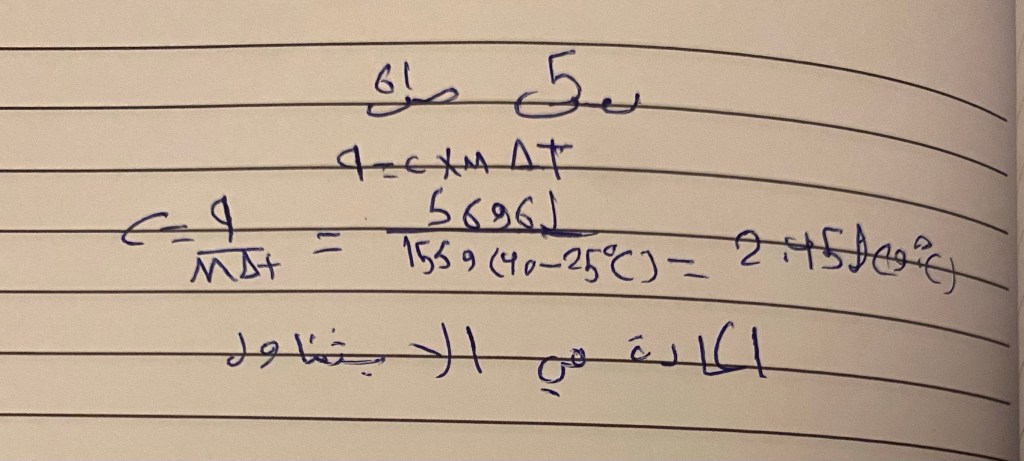 س5 ص61
q = c × m ΔT
c = q / mΔt = 5696J / 155g (40-25°C) = 2.45J(g.°C)
المادة هي الايثانول